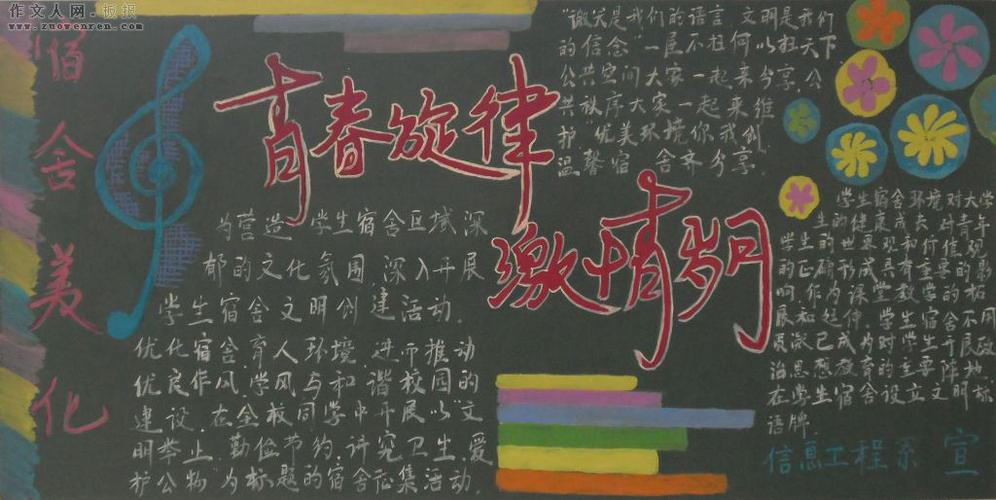 作文人网·板报
www.zuowenren.net
宿舍美化
青春旋律
激情岁月
为营造学生宿舍区域深
郁的文化氛围,深入开展
学生宿舍文明创建活动,
优化宿舍育人环境,进而推动
优良作风、学风与和谐校园的
建设,在全校同学中开展以"文
明举止、勤俭节约、讲究卫生、爱
护公物"为标题的宿舍征集活动。
"微笑是我们的语言 文明是我们
的信念 一屋不扫何以扫天下
公共空间大家一起来分享,公
共秩序大家一起来维
护 优美环境你我创
温馨宿舍齐分享。
学生宿舍环境对大学
生的健康成长、对青年
学生的世界观和价值观
的正确形成具有重要的影
响,作为课堂教学的拓
展和延伸,学生宿舍不用
质疑已成为对学生开展政
治思想教育的主要阵地
在学生宿舍设立文明标
语牌。
信息工程系 宣